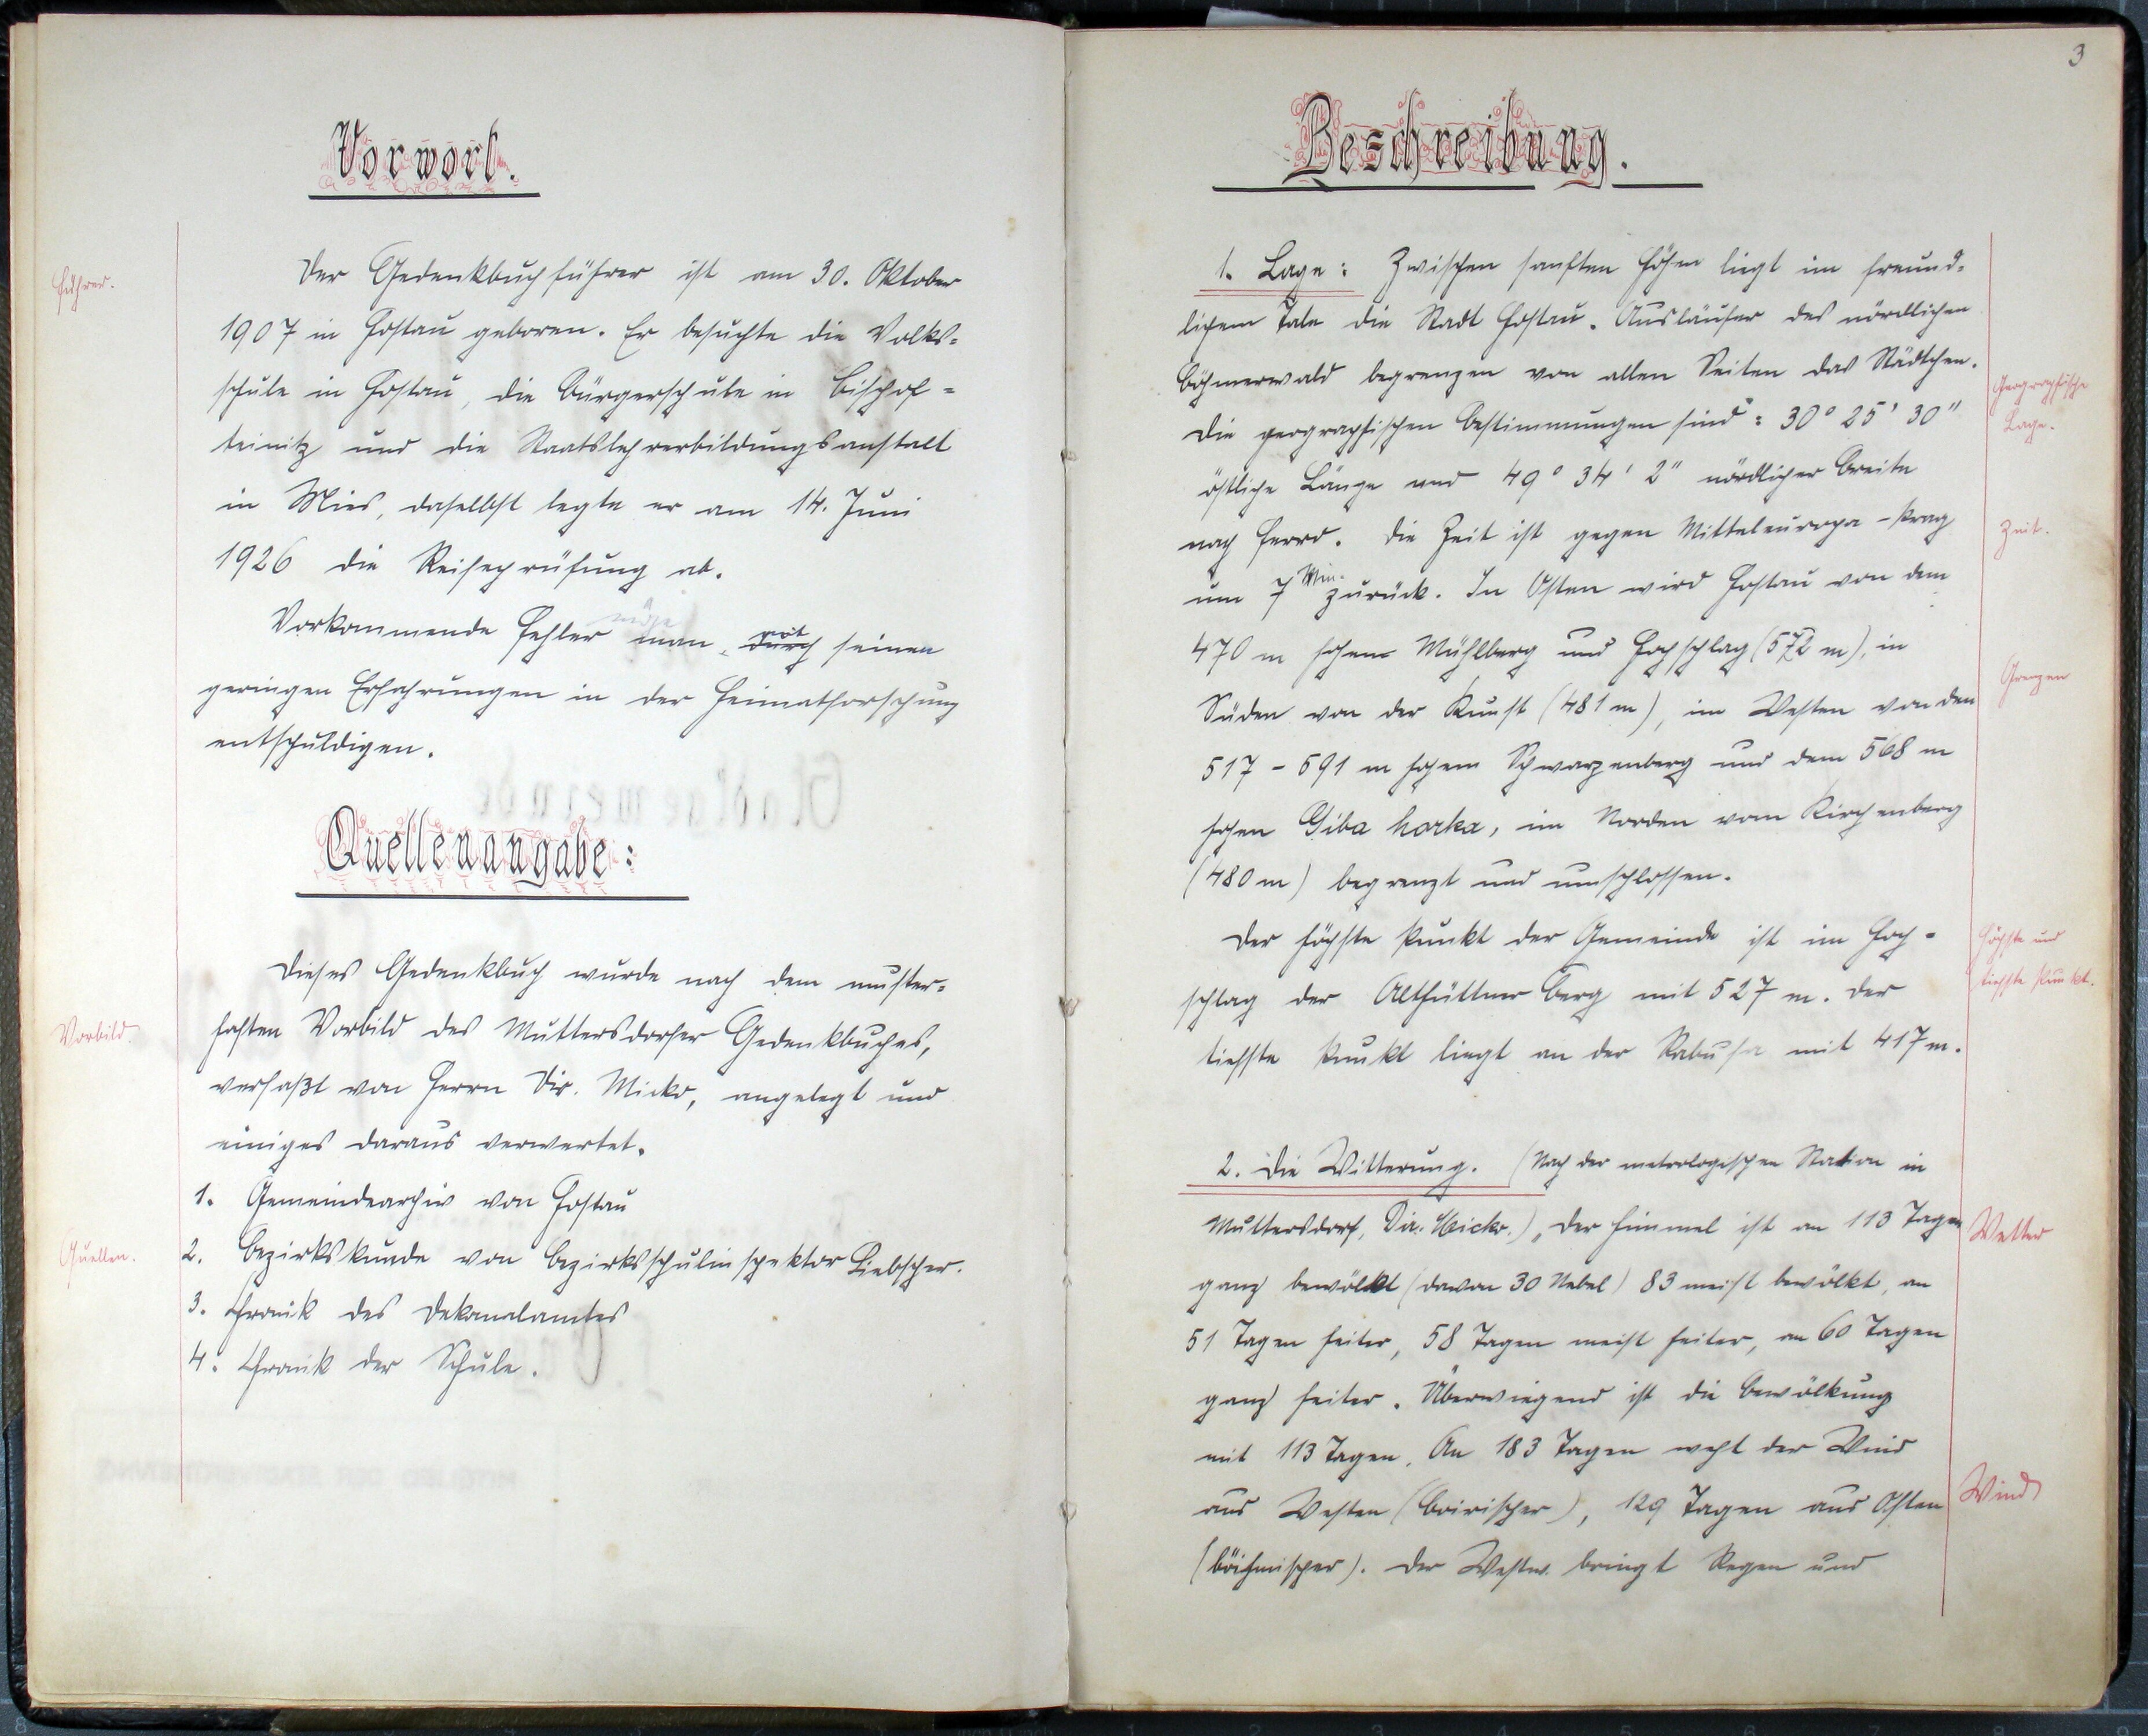 Vorwort.
Führer.
Der Gedenkbuchführer ist am 30. Oktober
1907 in Hostau geboren. Er besuchte die Volks=
schule in Hostau, die Bürgerschule in Bischof=
teinitz und die Staatslehrerbildungsanstalt
in Mies, daselbst legte er am 14. Juni
1926 die Reifeprüfung ab.
möge mit
Vorkommende Fehler man, durch seinen
geringen Erfahrungen in der Heimatforschung
entschuldigen.
Quellenangabe:
Dieses Gedenkbuch wurde nach dem muster=
Vorbild.
haften Vorbild des Muttersdorfer Gedenkbuches,
verfaßt von Herrn Dir. Micko, angelegt und
einiges daraus verwertet.
1. Gemeindearchiv von Hostau
Quellen.
2. Bezirkskunde von Bezirksschulinspektor Liebscher.
3. Chronik des Dekanalamtes
4. Chronik der Schule.
3
Beschreibung.
1. Lage: Zwischen sanften Höhen liegt im freund=
lichem Tale die Stadt Hostau. Ausläufer des nördlichen
Böhmerwald begrenzen von allen Seiten das Städtchen.
Geographische
Lage.
Die geographischen Bestimmungen sind: 30° 25' 30"
östliche Länge und 49° 34' 2" nördlicher Breite
nach Ferro. Die Zeit ist gegen Mitteleuropa - Prag
Zeit.
um 7 Min. zurück. In Osten wird Hostau von dem
470 m hohen Mühlberg und Hochschlag (572 m), in
Grenzen
Süden von der Kunst (481 m), im Westen von den
517 - 591 m hohem Schwarzenberg und dem 568 m
hohen Giba horka, im Norden vom Kirchenberg
(480 m) begrenzt und umschlossen.
Der höchste Punkt der Gemeinde ist im Hoch=
Höchste und
tiefste Punkt.
schlag der Althüttner Berg mit 527 m. Der
tiefste Punkt liegt an der Rabusa mit 417 m.
2. Die Witterung. (Nach der metrologischen Station in
Muttersdorf, Dir. Micko.) „Der Himmel ist an 113 Tagen
Wetter
ganz bewölkt (davon 30 Nebel) 83 meist bewölkt, an
51 Tagen heiter, 58 Tagen meist heiter, an 60 Tagen
ganz heiter. Überwiegend ist die Bewölkung
mit 113 Tagen. An 183 Tagen weht der Wind
aus Westen (boirischer), 129 Tagen aus Osten
Wind
(böihmischer). Der Westw. bringt Regen und